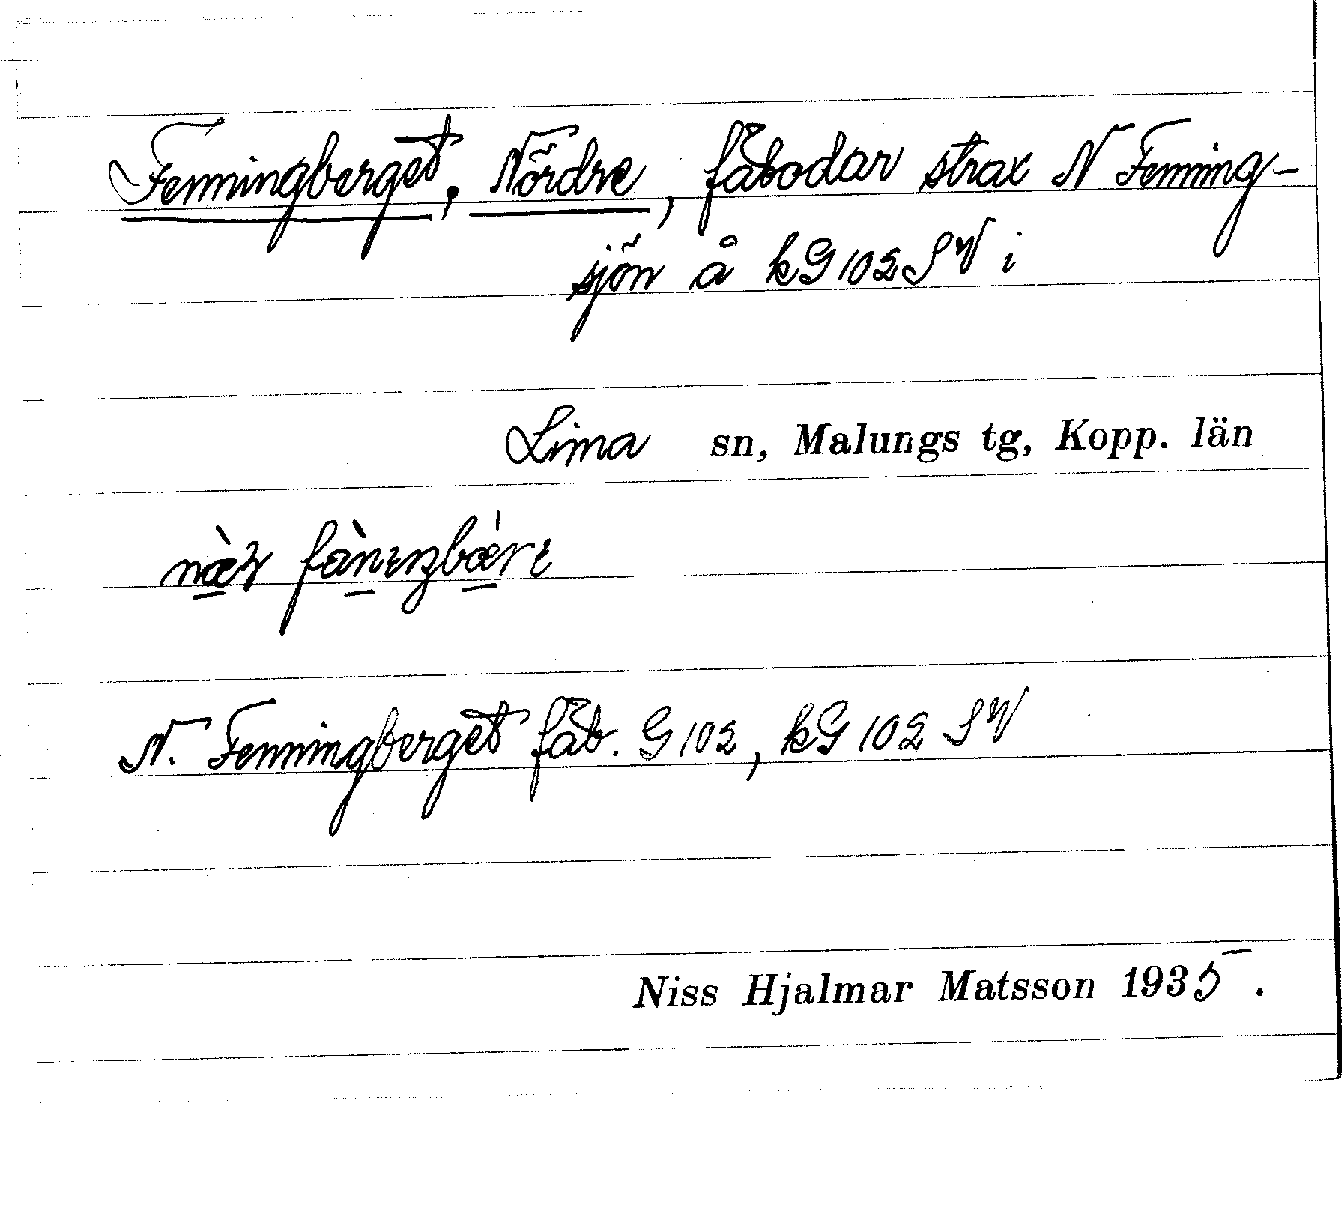 Fenningberget, Nördre, fäbodar strax N Fenning-
sjön å kG102SV i
Lima sn, Malungs tg, Kopp. län
N. Fenningberget fäb. G102, kG102 SV
Niss Hjalmar Matsson 1935.